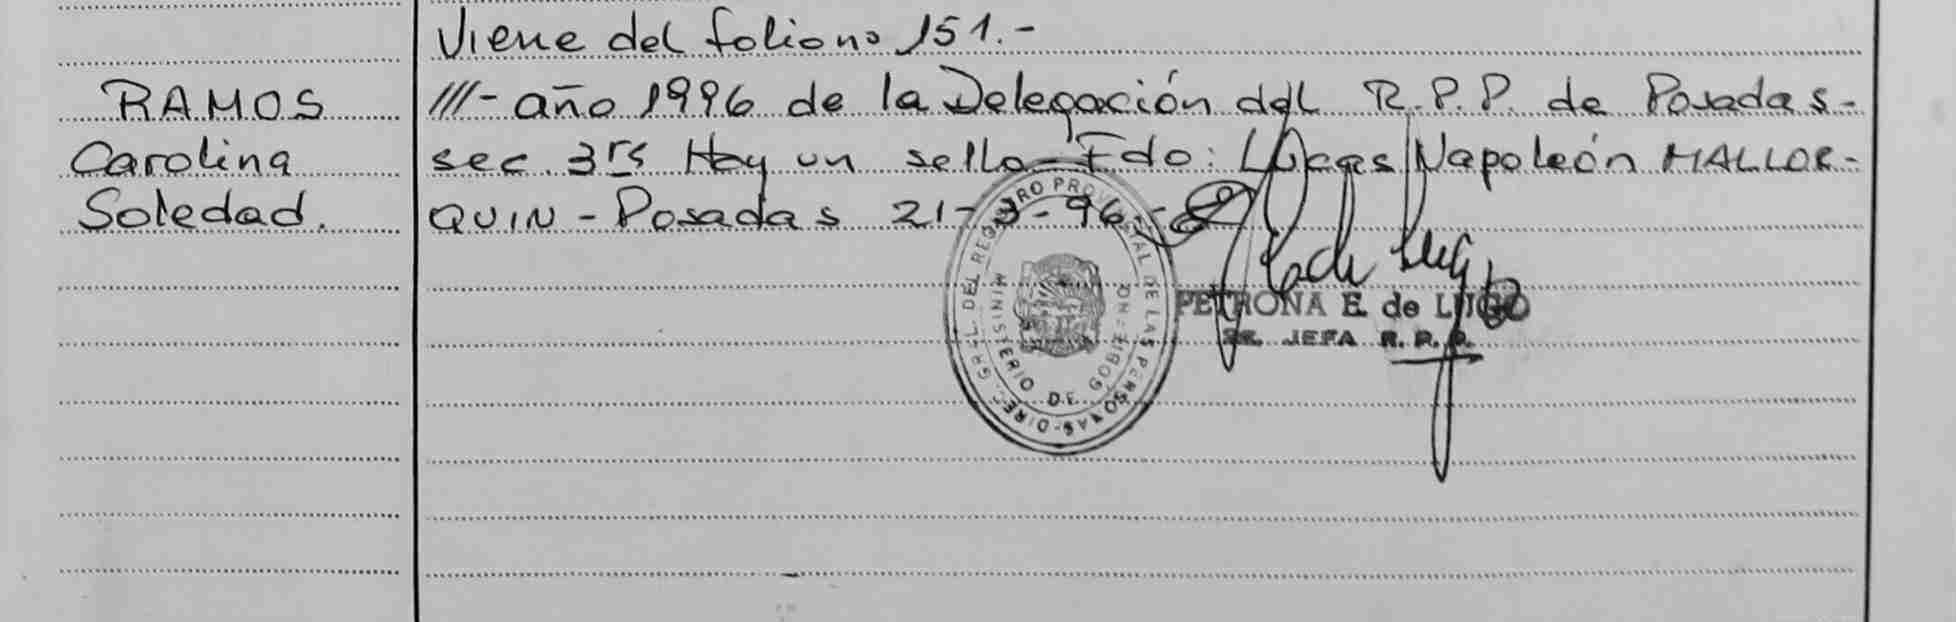 Viene del folio nº 151.-
RAMOS
Carolina
Soledad.
///- año 1996 de la Delegación del R.P.P. de Posadas-
sec. 3rs Hay un sello - Fdo: Lucas Napoleón MALLOR-
QUIN - Posadas 21-3-96-
DIREC. GRAL. DEL REGISTRO PROVINCIAL DE LAS PERSONAS
MINISTERIO DE GOBIERNO
PETRONA E. de LUGO
JEFA R. P. P.